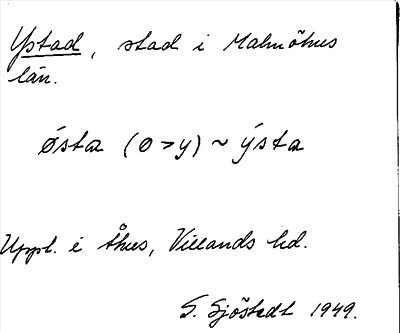 Ystad, stad i Malmöhus
län.
ǿsta (ø > y) ~ ýsta
Uppt. i Åhus, Villands hd.
G. Sjöstedt 1949.